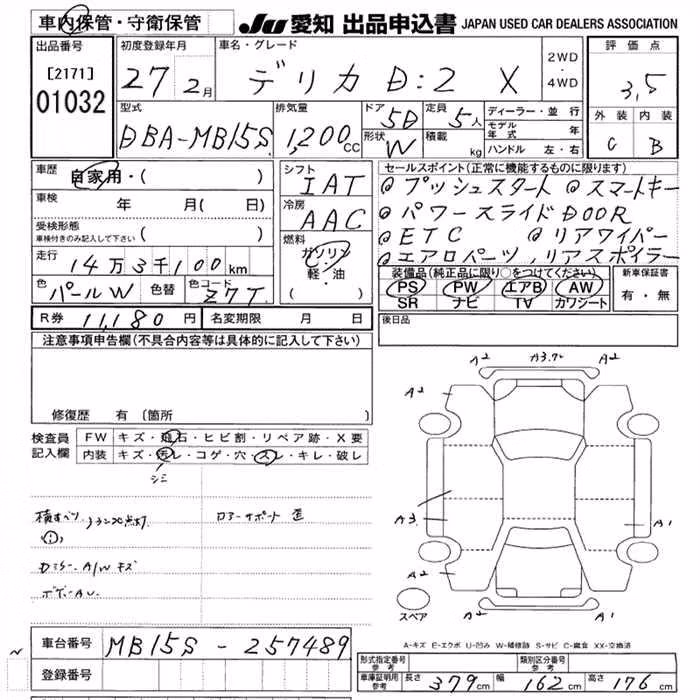 車内保管・守衛保管
JU 愛知 出品申込書 JAPAN USED CAR DEALERS ASSOCIATION
出品番号 初度登録年月 車名・グレード 評価点
[2171] 01032
27 2月 デリカ D:2 X 2WD・4WD 3,5
型式 排気量 ドア 定員 ディーラー・並行 外装 内装
DBA-MB15S 1,200cc 5D 5人 モデル年式 年 C B
形状 W 積載 kg ハンドル 左・右
車歴 自家用・( ) シフト IAT セールスポイント(正常に機能するものに限ります)
@プッシュスタート @スマートキー
車検 年 月( 日) 冷房 AAC @パワースライドDOOR
受検形態 車検付きのみ記入して下さい ( ) @ETC @リアワイパー
燃料 ガソリン・軽・油 ( ) @エアロパーツ,リアスポイラー
走行 14万3千100km 装備品(純正品に限り○をつけてください) 新車保証書
色 パールW 色替 色コード Z7T PS PW エアB AW 有・無
SR ナビ TV カワシート
R券 11,180円 名変期限 月 日 後日品
注意事項申告欄(不具合内容等は具体的に記入して下さい)
修復歴 有(箇所
検査員記入欄 FW キズ・飛石・ヒビ割・リペア跡・X要
内装 キズ・汚レ・コゲ・穴・スレ・キレ・破レ
シミ
A2 A3.2 A2
A2 A2
A3 A1
A2 A2
A1
スペア
Dミラー A/W キズ
A-キズ E-エクボ U-凹み W-補修跡 S-サビ C-腐食 XX-交換済
車台番号 MB15S-257489
登録番号
形式指定番号 参考 類別区分番号 参考
車庫証明用 参考 長さ 379cm 幅 162cm 高さ 176cm